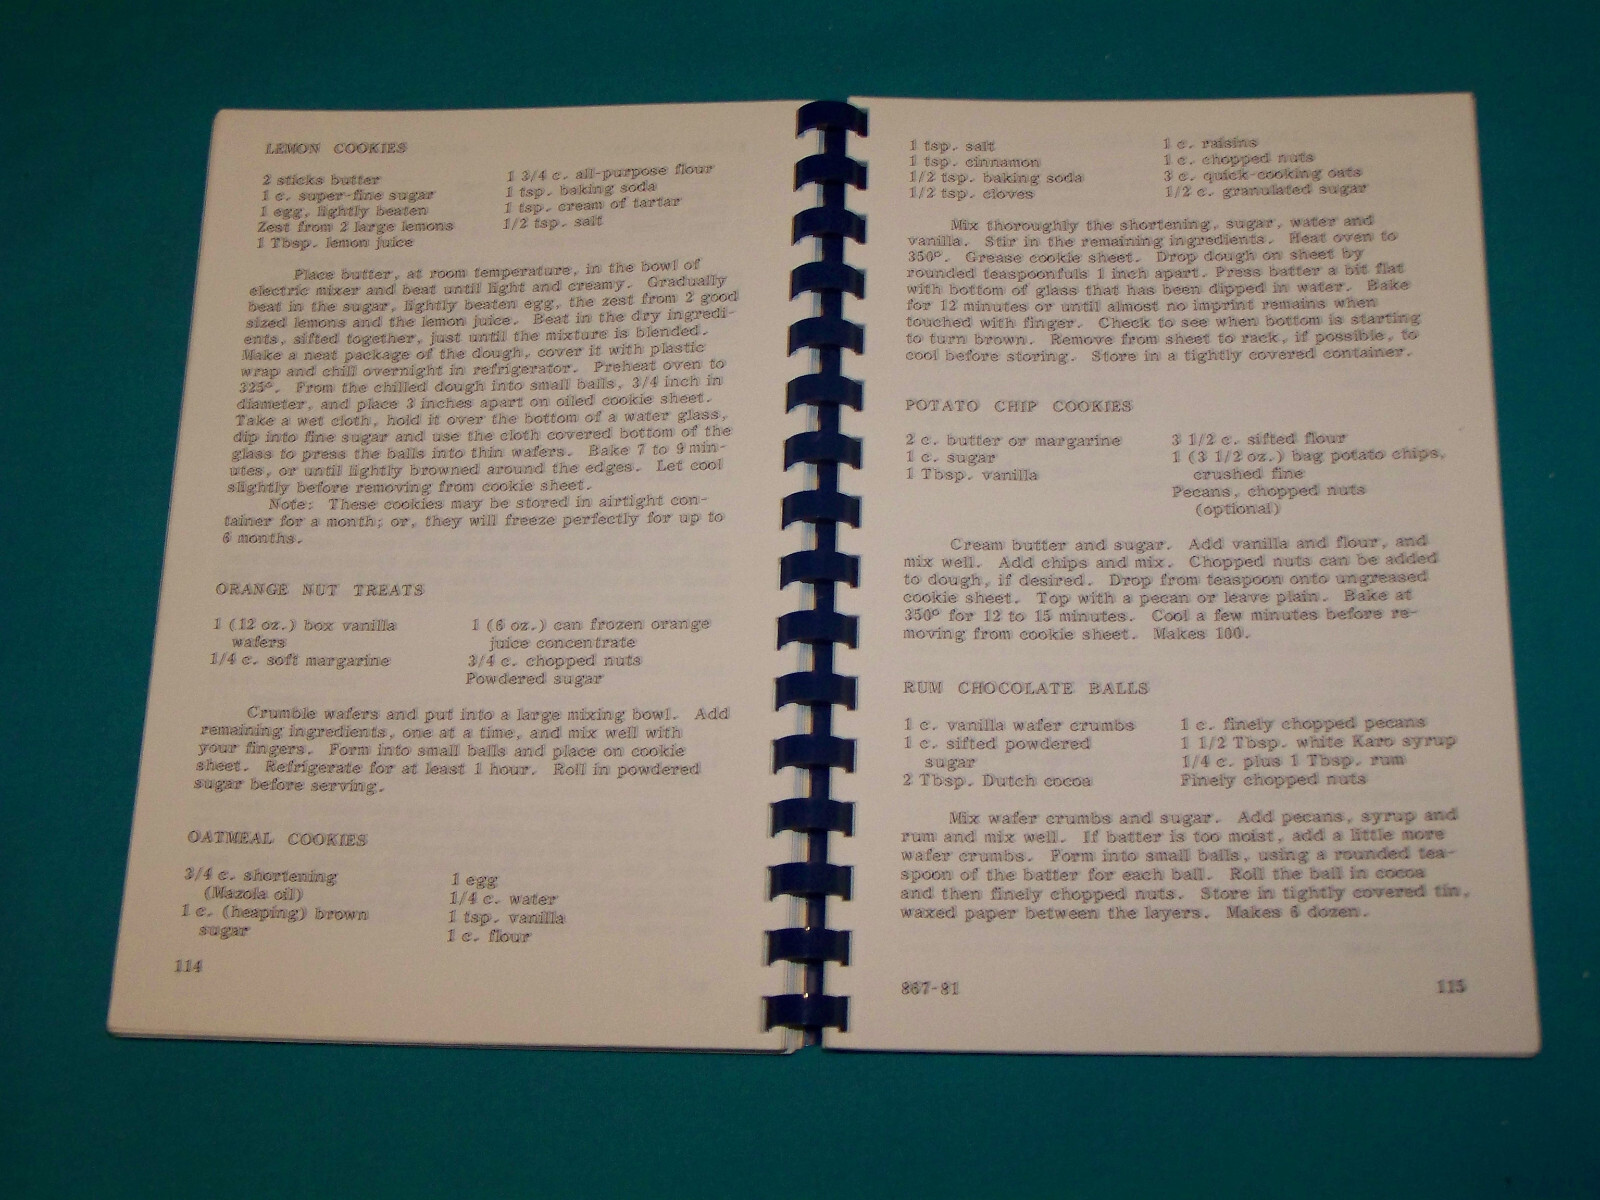 LEMON COOKIES
2 sticks butter
1 c. super-fine sugar
1 egg, lightly beaten
Zest from 2 large lemons
1 Tbsp. lemon juice
1 3/4 c. all-purpose flour
1 tsp. baking soda
1 tsp. cream of tartar
1/2 tsp. salt
Place butter, at room temperature, in the bowl of
electric mixer and beat until light and creamy. Gradually
beat in the sugar, lightly beaten egg, the zest from 2 good
sized lemons and the lemon juice. Beat in the dry ingredi-
ents, sifted together, just until the mixture is blended.
Make a neat package of the dough, cover it with plastic
wrap and chill overnight in refrigerator. Preheat oven to
325°. From the chilled dough into small balls, 3/4 inch in
diameter, and place 3 inches apart on oiled cookie sheet.
Take a wet cloth, hold it over the bottom of a water glass,
dip into fine sugar and use the cloth covered bottom of the
glass to press the balls into thin wafers. Bake 7 to 9 min-
utes, or until lightly browned around the edges. Let cool
slightly before removing from cookie sheet.
Note: These cookies may be stored in airtight con-
tainer for a month; or, they will freeze perfectly for up to
6 months.
ORANGE NUT TREATS
1 (12 oz.) box vanilla
wafers
1/4 c. soft margarine
1 (6 oz.) can frozen orange
juice concentrate
3/4 c. chopped nuts
Powdered sugar
Crumble wafers and put into a large mixing bowl. Add
remaining ingredients, one at a time, and mix well with
your fingers. Form into small balls and place on cookie
sheet. Refrigerate for at least 1 hour. Roll in powdered
sugar before serving.
OATMEAL COOKIES
3/4 c. shortening
(Mazola oil)
1 c. (heaping) brown
sugar
1 egg
1/4 c. water
1 tsp. vanilla
1 c. flour
114
1 tsp. salt
1 tsp. cinnamon
1/2 tsp. baking soda
1/2 tsp. cloves
1 c. raisins
1 c. chopped nuts
3 c. quick-cooking oats
1/2 c. granulated sugar
Mix thoroughly the shortening, sugar, water and
vanilla. Stir in the remaining ingredients. Heat oven to
350°. Grease cookie sheet. Drop dough on sheet by
rounded teaspoonfuls 1 inch apart. Press batter a bit flat
with bottom of glass that has been dipped in water. Bake
for 12 minutes or until almost no imprint remains when
touched with finger. Check to see when bottom is starting
to turn brown. Remove from sheet to rack, if possible, to
cool before storing. Store in a tightly covered container.
POTATO CHIP COOKIES
2 c. butter or margarine
1 c. sugar
1 Tbsp. vanilla
3 1/2 c. sifted flour
1 (3 1/2 oz.) bag potato chips,
crushed fine
Pecans, chopped nuts
(optional)
Cream butter and sugar. Add vanilla and flour, and
mix well. Add chips and mix. Chopped nuts can be added
to dough, if desired. Drop from teaspoon onto ungreased
cookie sheet. Top with a pecan or leave plain. Bake at
350° for 12 to 15 minutes. Cool a few minutes before re-
moving from cookie sheet. Makes 100.
RUM CHOCOLATE BALLS
1 c. vanilla wafer crumbs
1 c. sifted powdered
sugar
2 Tbsp. Dutch cocoa
1 c. finely chopped pecans
1 1/2 Tbsp. white Karo syrup
1/4 c. plus 1 Tbsp. rum
Finely chopped nuts
Mix wafer crumbs and sugar. Add pecans, syrup and
rum and mix well. If batter is too moist, add a little more
wafer crumbs. Form into small balls, using a rounded tea-
spoon of the batter for each ball. Roll the ball in cocoa
and then finely chopped nuts. Store in tightly covered tin,
waxed paper between the layers. Makes 6 dozen.
867-81
115